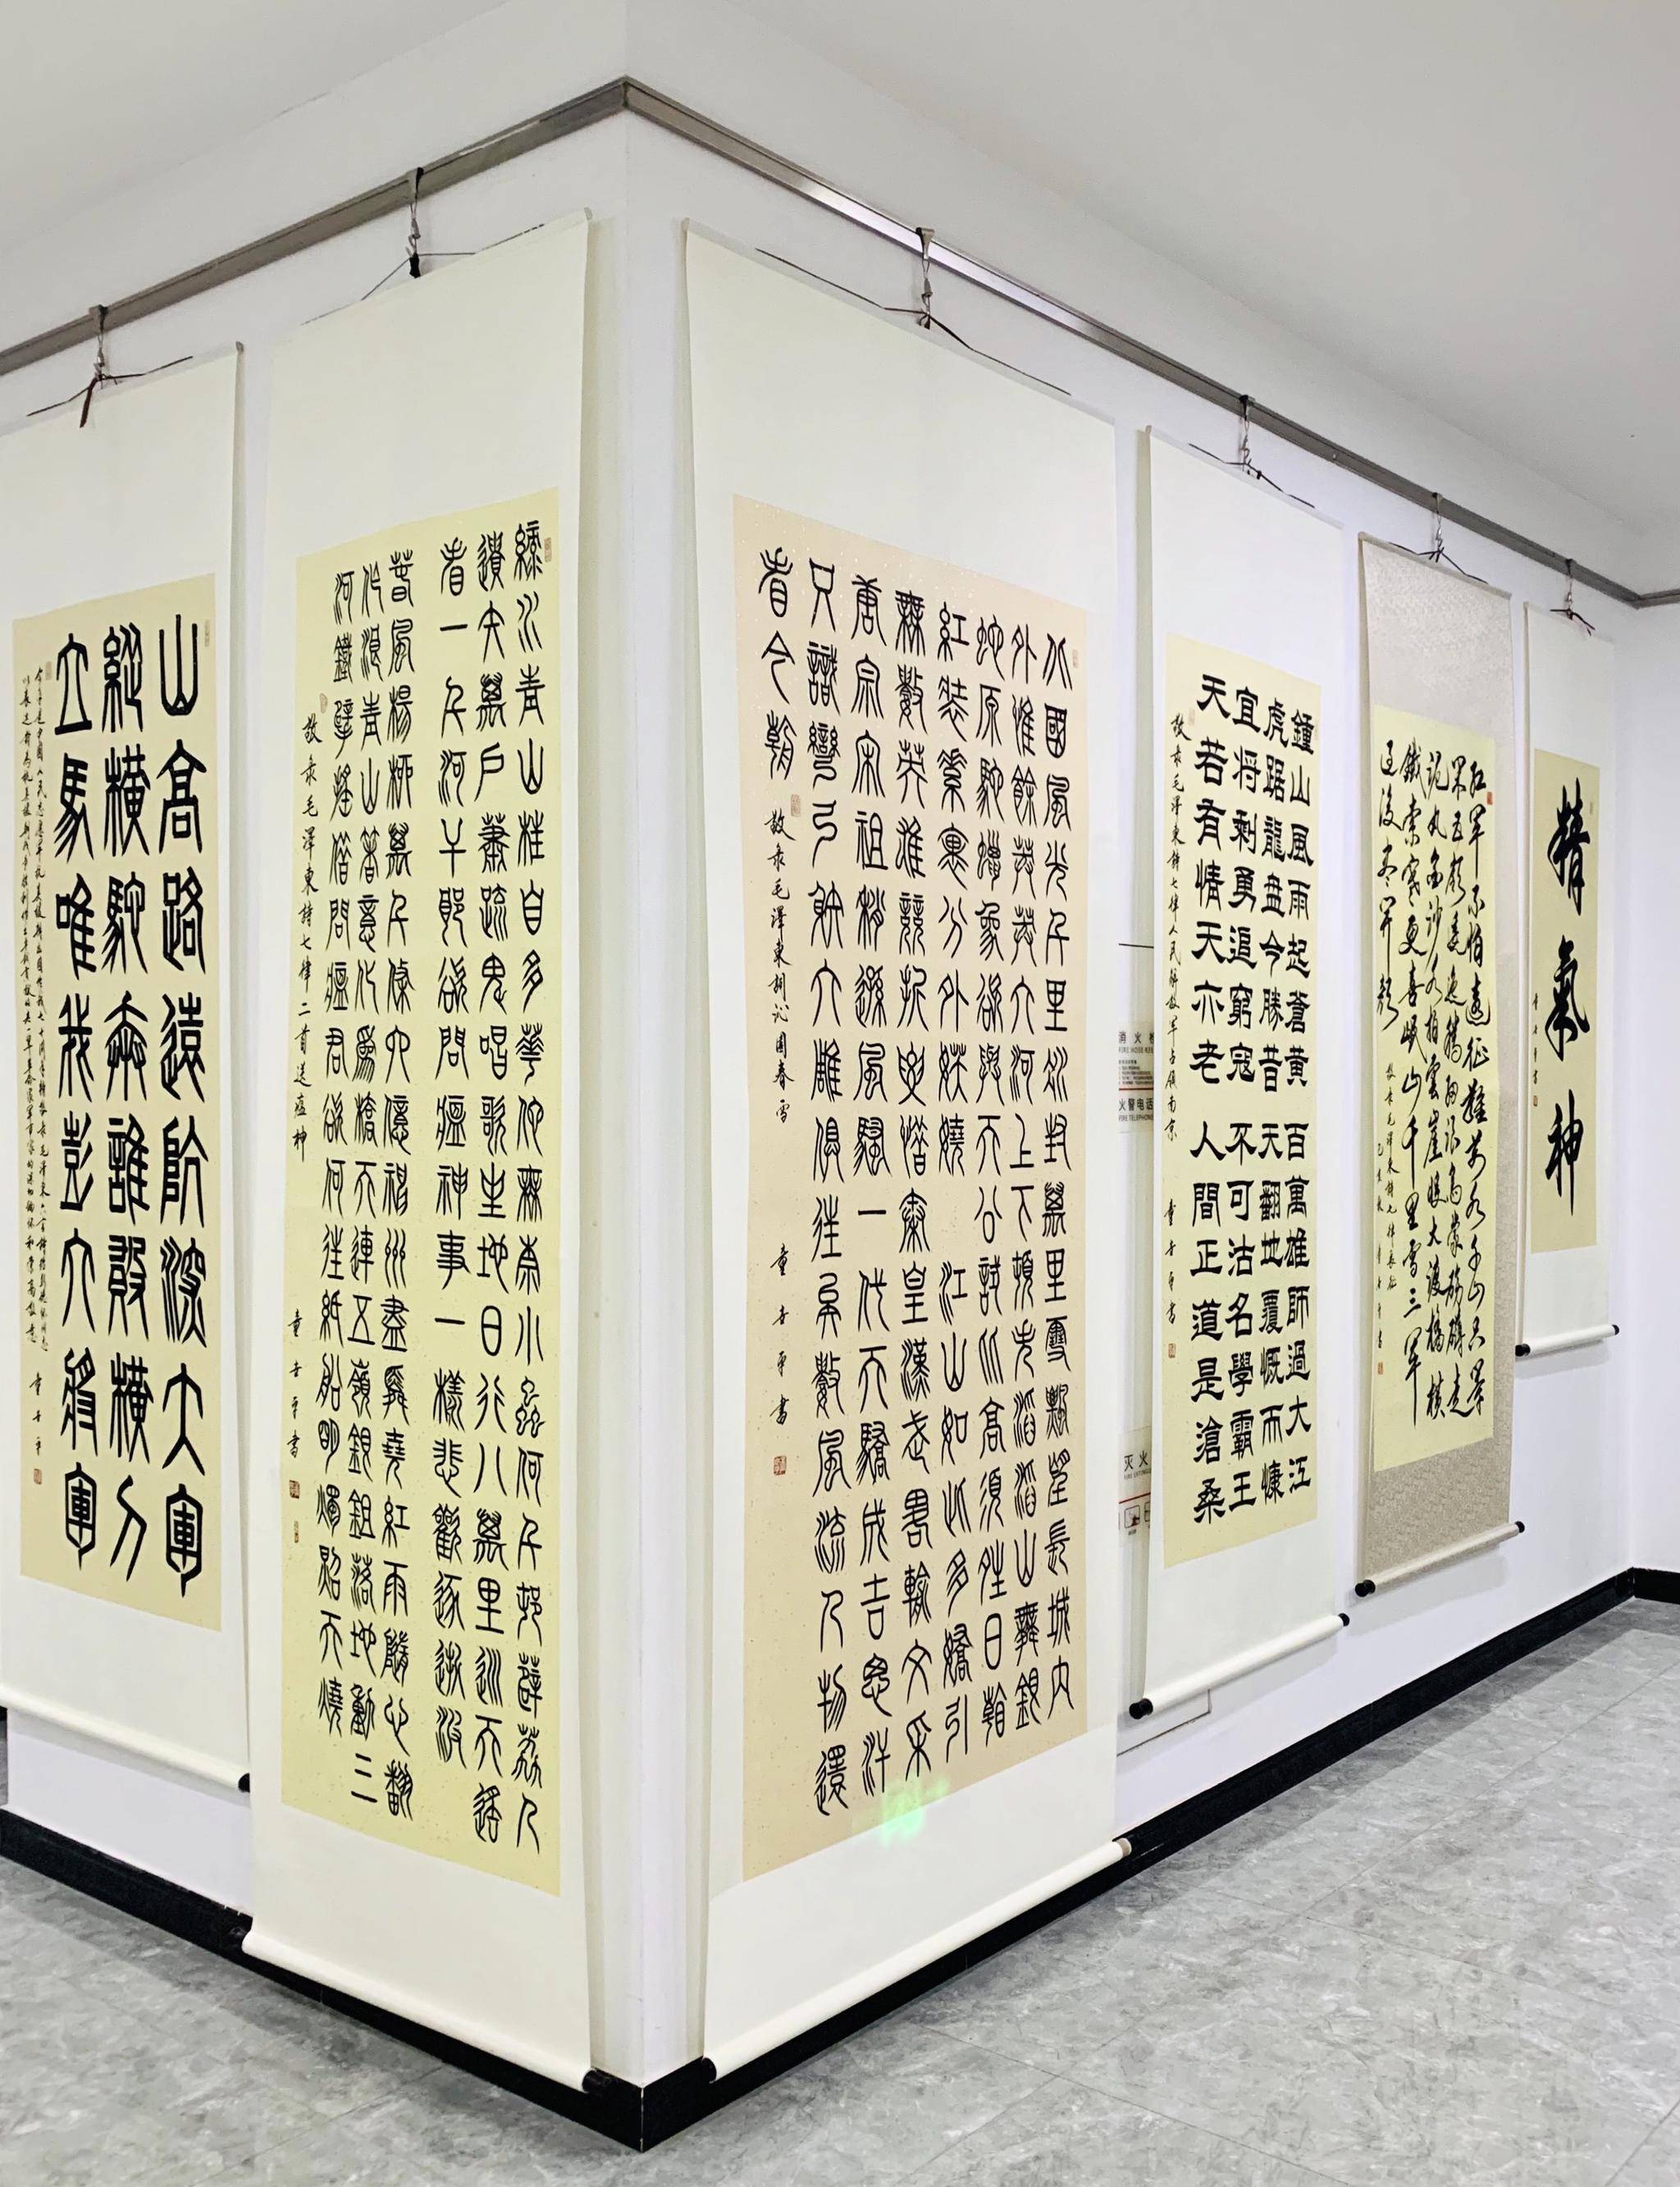 山高路遠阬深大軍
縱橫馳奔誰敢橫刀
立馬唯我彭大將軍
今年是中國人民志願軍抗美援朝出國作戰七十周年特敬錄毛澤東六言詩給彭德懷同志
童吉平
綠水青山枉自多華佗無奈小蟲何千村薜荔人
遺矢萬戶蕭疏鬼唱歌坐地日行八萬里巡天遙
看一千河牛郎欲問瘟神事一樣悲歡逐逝波
春風楊柳萬千條六億神州盡舜堯紅雨隨心翻
作浪青山著意化爲橋天連五嶺銀鉏落地動三
河鐵臂搖借問瘟君欲何往紙船明燭照天燒
敬錄毛澤東詩七律二首送瘟神 童吉平書
北國風光千里冰封萬里雪飄望長城內
外惟餘莽莽大河上下頓失滔滔山舞銀
蛇原馳蠟象欲與天公試比高須晴日看
紅裝素裹分外妖嬈 江山如此多嬌引
無數英雄競折腰惜秦皇漢武略輸文采
唐宗宋祖稍遜風騷一代天驕成吉思汗
只識彎弓射大雕俱往矣數風流人物還
看今朝 敬錄毛澤東詞沁園春雪 童吉平書
鍾山風雨起蒼黃 百萬雄師過大江
虎踞龍盘今勝昔 天翻地覆慨而慷
宜將剩勇追窮寇 不可沽名學霸王
天若有情天亦老 人間正道是滄桑
敬錄毛澤東詩七律人民解放軍占領南京 童吉平書
紅軍不怕遠征難萬水千山只等
閑五嶺逶迤騰細浪烏蒙磅礴走
泥丸金沙水拍雲崖暖大渡橋橫
鐵索寒更喜岷山千里雪三軍
過後盡開顏 敬錄毛澤東詩七律長征
精氣神
童吉平書
消火
FIRE HOSE
火警电话
FIRE TELEPHONE
灭火